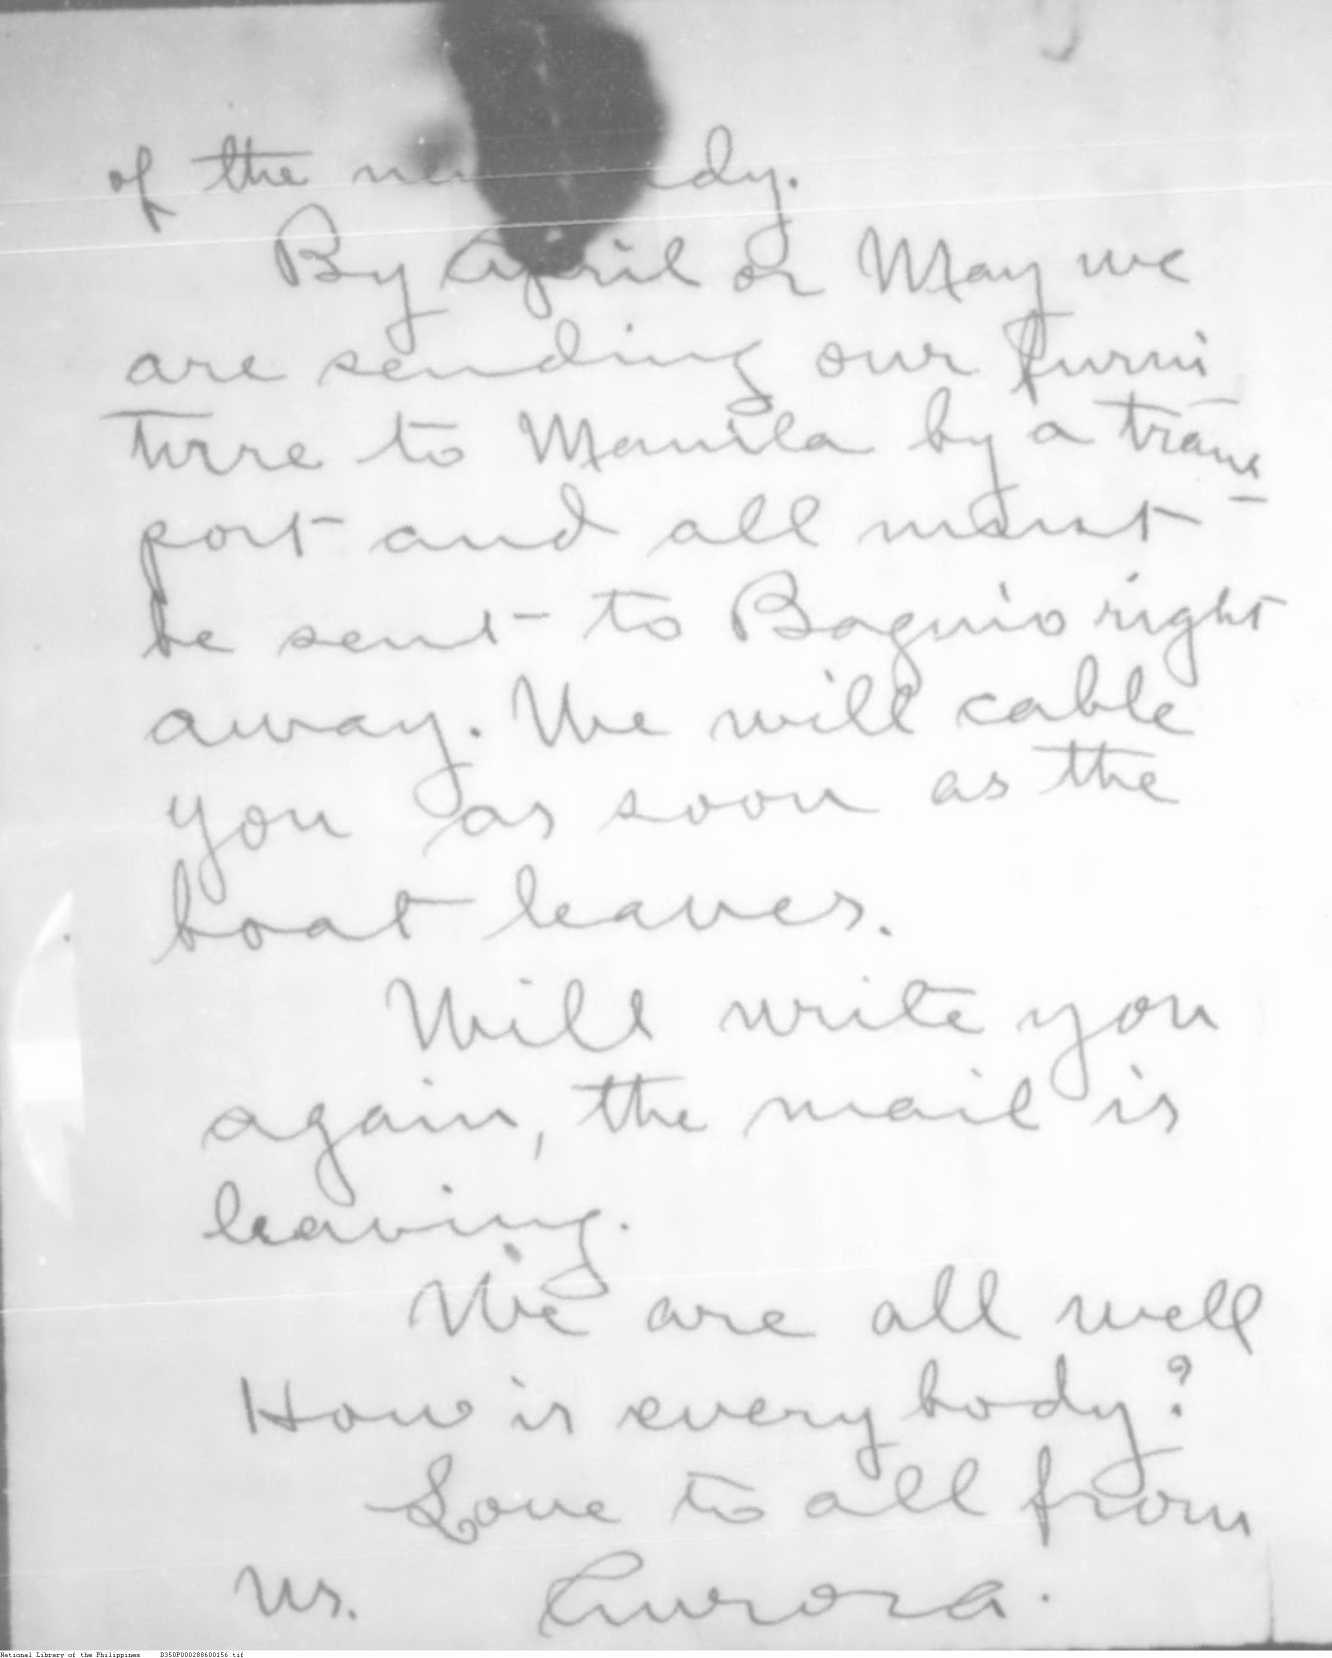 of the
By April or May we
are sending our furni
ture to Manila by a trans
port and all must
be sent to Baguio right
away. We will cable
you as soon as the
boat leaves.
Will write you
again, the mail is
leaving.
We are all well
How is everybody?
Love to all from
us. Aurora.
National Library of the Philippines D350P000288600156.tif